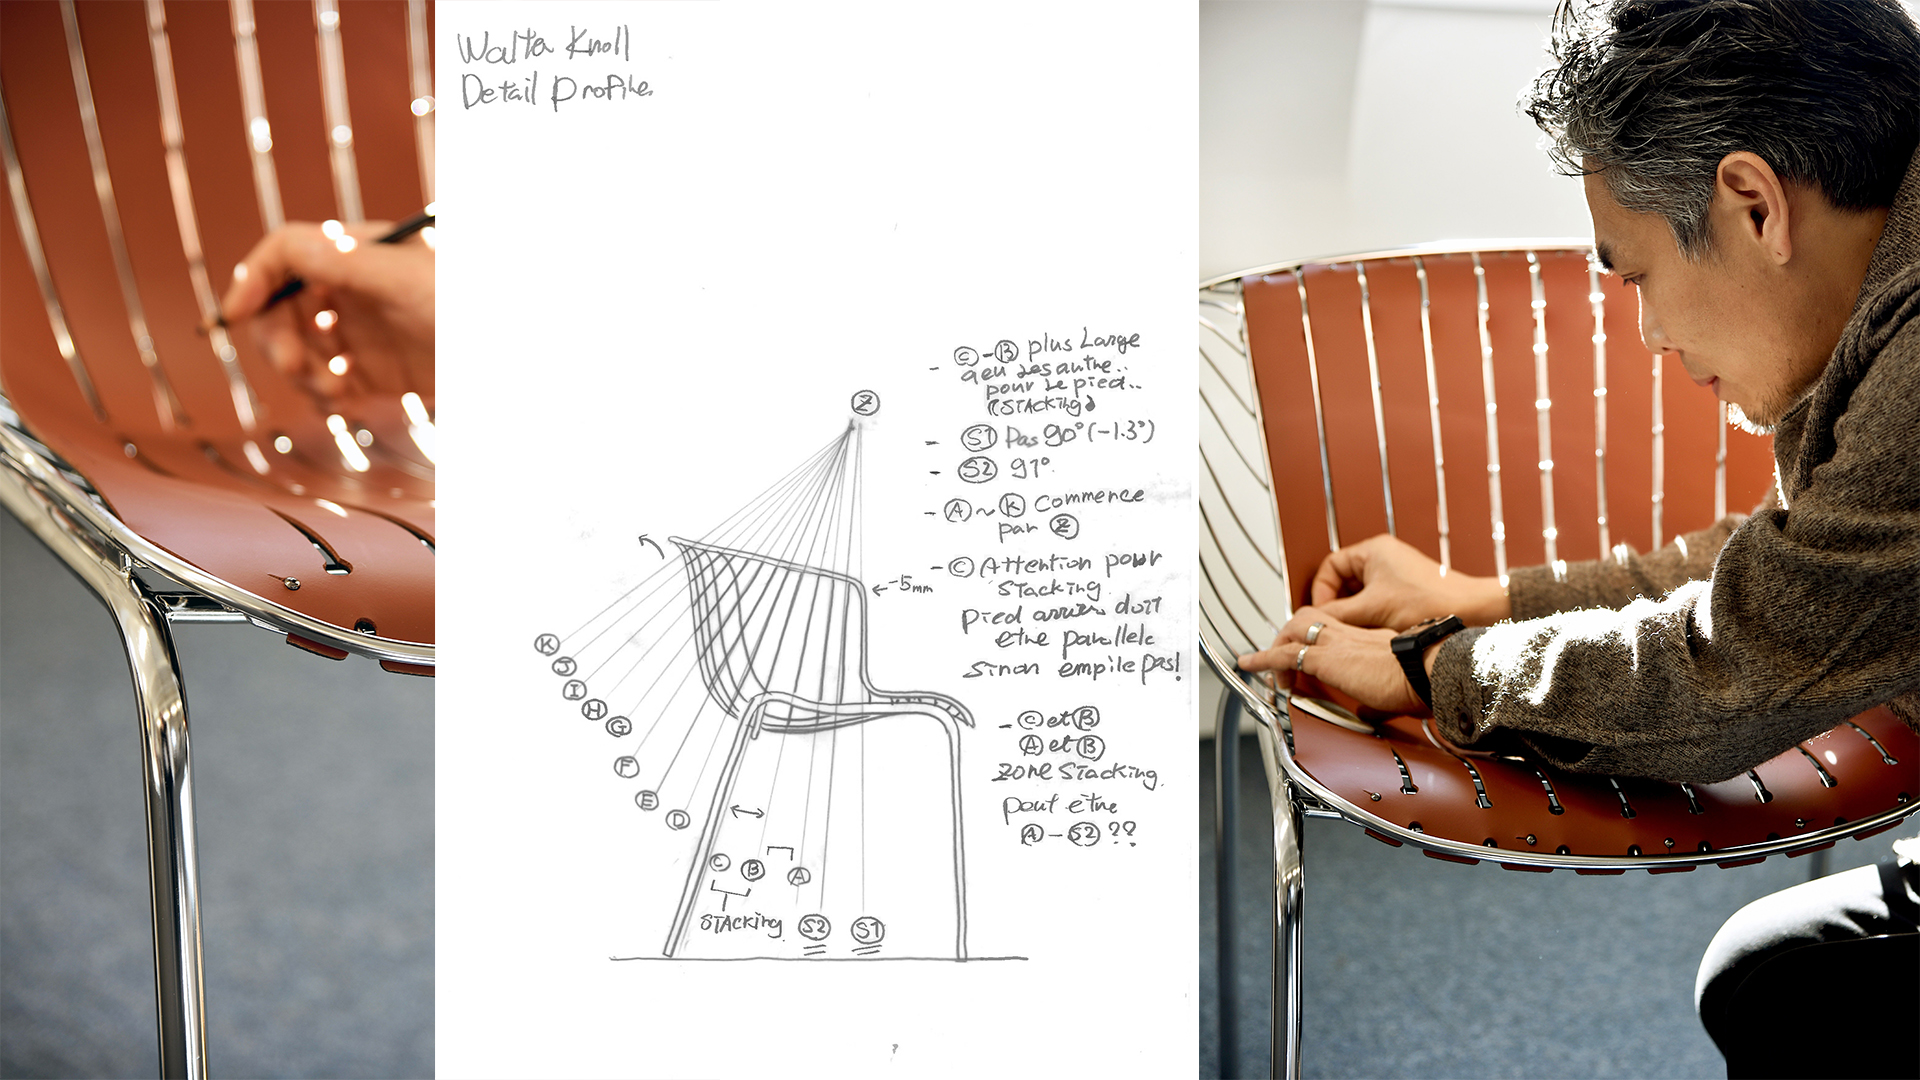 Walter Knoll
Detail Profile.
Z
- C - B plus Large
que les autre..
pour le pied..
(STACKing)
- S1 Pas 90° (-1.3°)
- S2 91°.
- A ~ K Commence
par Z
← -5mm
- C Attention pour
Stacking.
pied arriere doit
etre parallele
sinon empile pas!
K
J
I
H
G
F
E
D
- C et B
A et B
zone Stacking.
peut être
A - S2 ??
C
B
A
STACking.
S2
S1